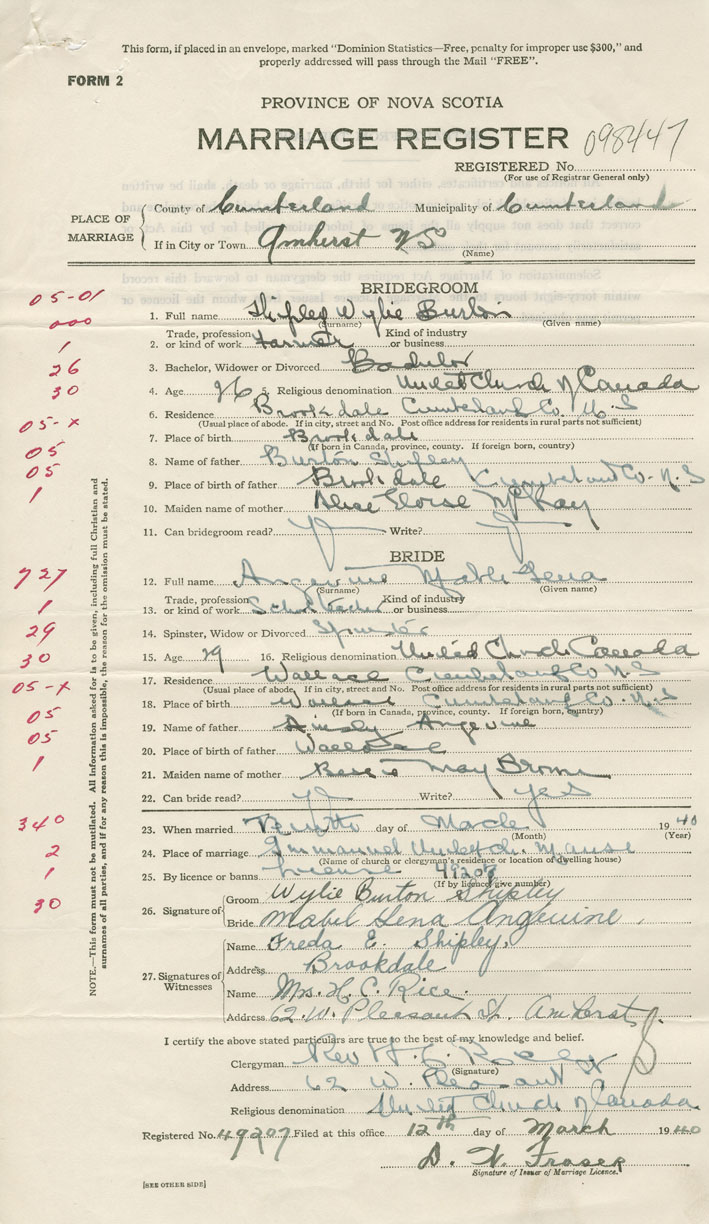 This form, if placed in an envelope, marked "Dominion Statistics—Free, penalty for improper use $300," and
properly addressed will pass through the Mail "FREE".
FORM 2
PROVINCE OF NOVA SCOTIA
MARRIAGE REGISTER 098447
REGISTERED No.
(For use of Registrar General only)
PLACE OF MARRIAGE
County of Cumberland Municipality of Cumberland
If in City or Town Amherst NS
(Name)
BRIDEGROOM
05-01
1. Full name Shipley Wylie Burton
(Surname) (Given name)
000
Trade, profession Kind of industry
2. or kind of work Farmer or business
1
3. Bachelor, Widower or Divorced Bachelor
26
4. Age 26 5. Religious denomination United Church of Canada
30
6. Residence Brookdale Cumberland Co. N.S
(Usual place of abode. If in city, street and No. Post office address for residents in rural parts not sufficient)
05-x
7. Place of birth Brookdale
(If born in Canada, province, county. If foreign born, country)
05
8. Name of father Burton Shipley
05
9. Place of birth of father Brookdale Cumberland Co. N.S
1
10. Maiden name of mother Alice Eloise McKay
11. Can bridegroom read? Write?
BRIDE
727
12. Full name Angevine Mable Lena
(Surname) (Given name)
Trade, profession Kind of industry
1
13. or kind of work School teacher or business
29
14. Spinster, Widow or Divorced Spinster
30
15. Age 29 16. Religious denomination United Church Canada
17. Residence Wallace Cumberland Co N.S
05-x
(Usual place of abode. If in city, street and No. Post office address for residents in rural parts not sufficient)
18. Place of birth Wallace Cumberland Co. N.S
05
(If born in Canada, province, county. If foreign born, country)
19. Name of father Angevine
05
20. Place of birth of father Wallace
1
21. Maiden name of mother May Brown
22. Can bride read? Write? yes
340
23. When married day of March 1940
(Month) (Year)
2
24. Place of marriage Immanuel United Ch. Manse
(Name of church or clergyman's residence or location of dwelling house)
1
25. By licence or banns License 49207
(If by licence, give number)
30
26. Signature of
Groom Wylie Burton Shipley
Bride Mabel Lena Angevine.
27. Signatures of Witnesses
Name Freda E. Shipley,
Address Brookdale
Name Mrs. H. C. Rice.
Address 62 W. Pleasant St. Amherst.
I certify the above stated particulars are true to the best of my knowledge and belief.
Clergyman Rev H. C. Rice
(Signature)
Address 62 W. Pleasant St
Religious denomination United Church of Canada
Registered No. 49207 Filed at this office 12th day of March 1940
D. W. Fraser
Signature of Issuer of Marriage Licence.
[SEE OTHER SIDE]
NOTE.—This form must not be mutilated. All information asked for is to be given, including full Christian and
surnames of all parties, and if for any reason this is impossible, the reason for the omission must be stated.